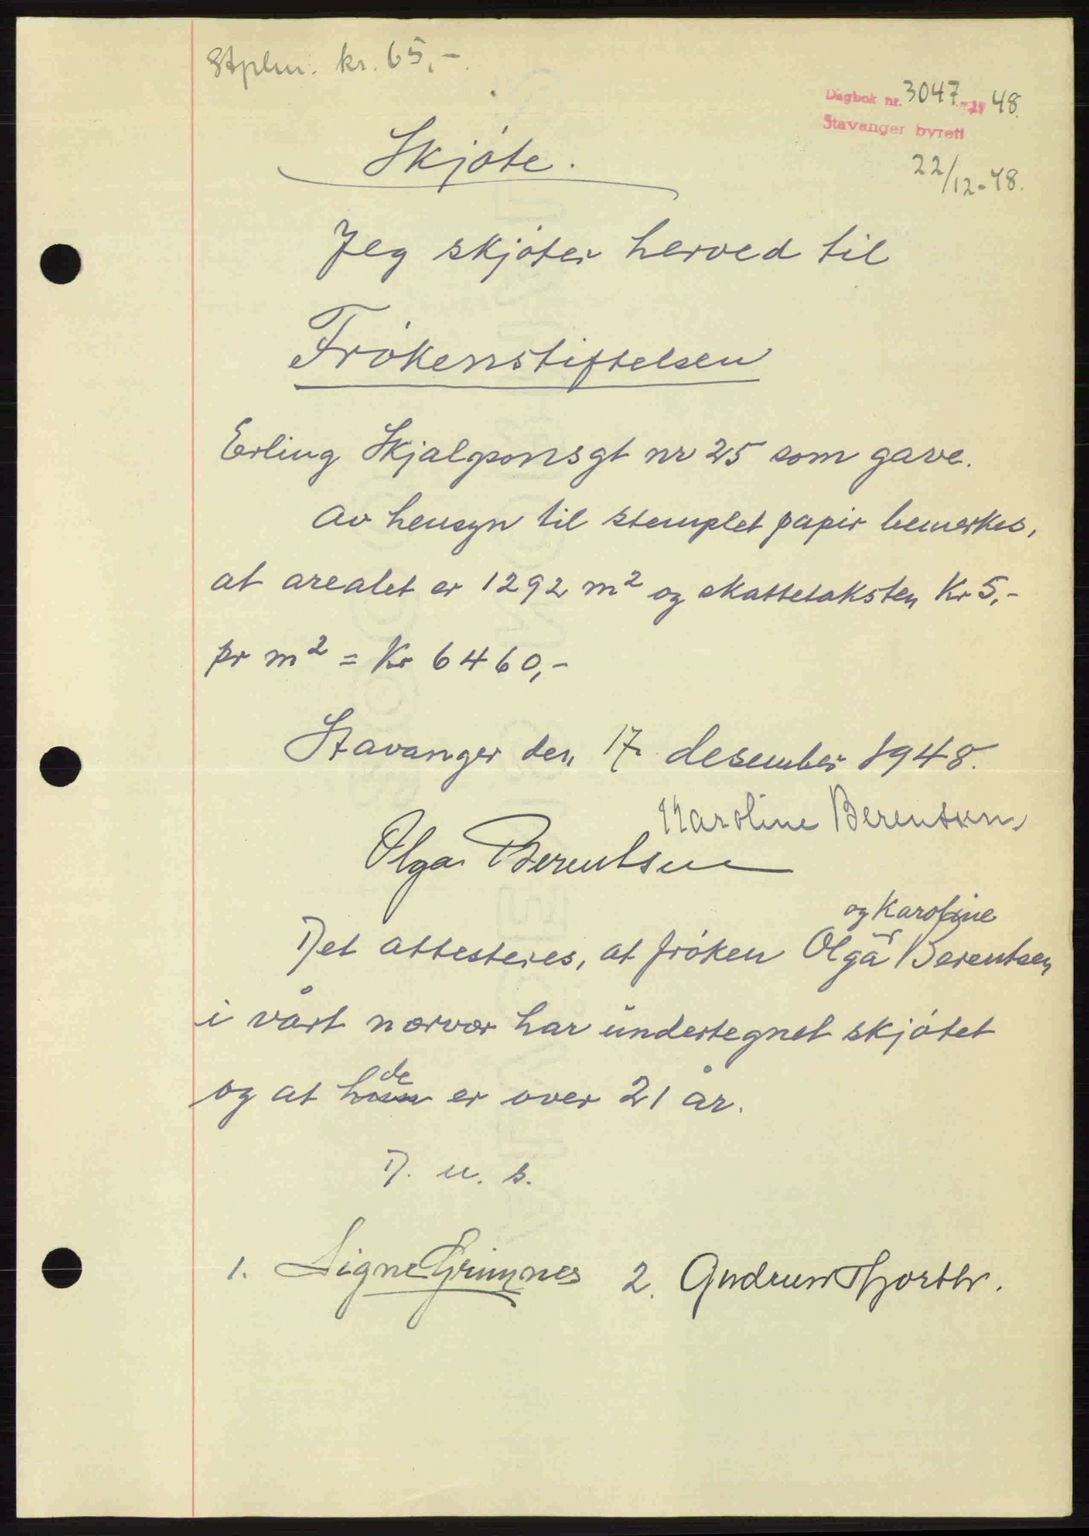 Stplm. kr. 65,-.
Dagbok nr. 3047 - 19 48.
Stavanger byrett
22/12-48.
Skjøte.
Jeg skjøter herved til
Frøkenstiftelsen
Erling Skjalgsonsgt nr 25 som gave.
Av hensyn til stemplet papir bemerkes,
at arealet er 1292 m² og skattetaksten Kr 5,-
pr m² = Kr 6460,-
Stavanger den 17. desember 1948.
Karoline Berentsen
Olga Berentsen
og Karoline
Det attesteres, at frøken Olga Berentsen
i vårt nærvær har undertegnet skjøtet
de
og at hun er over 21 år.
D. u. s.
1. Signe Grimnes 2. Gudrun